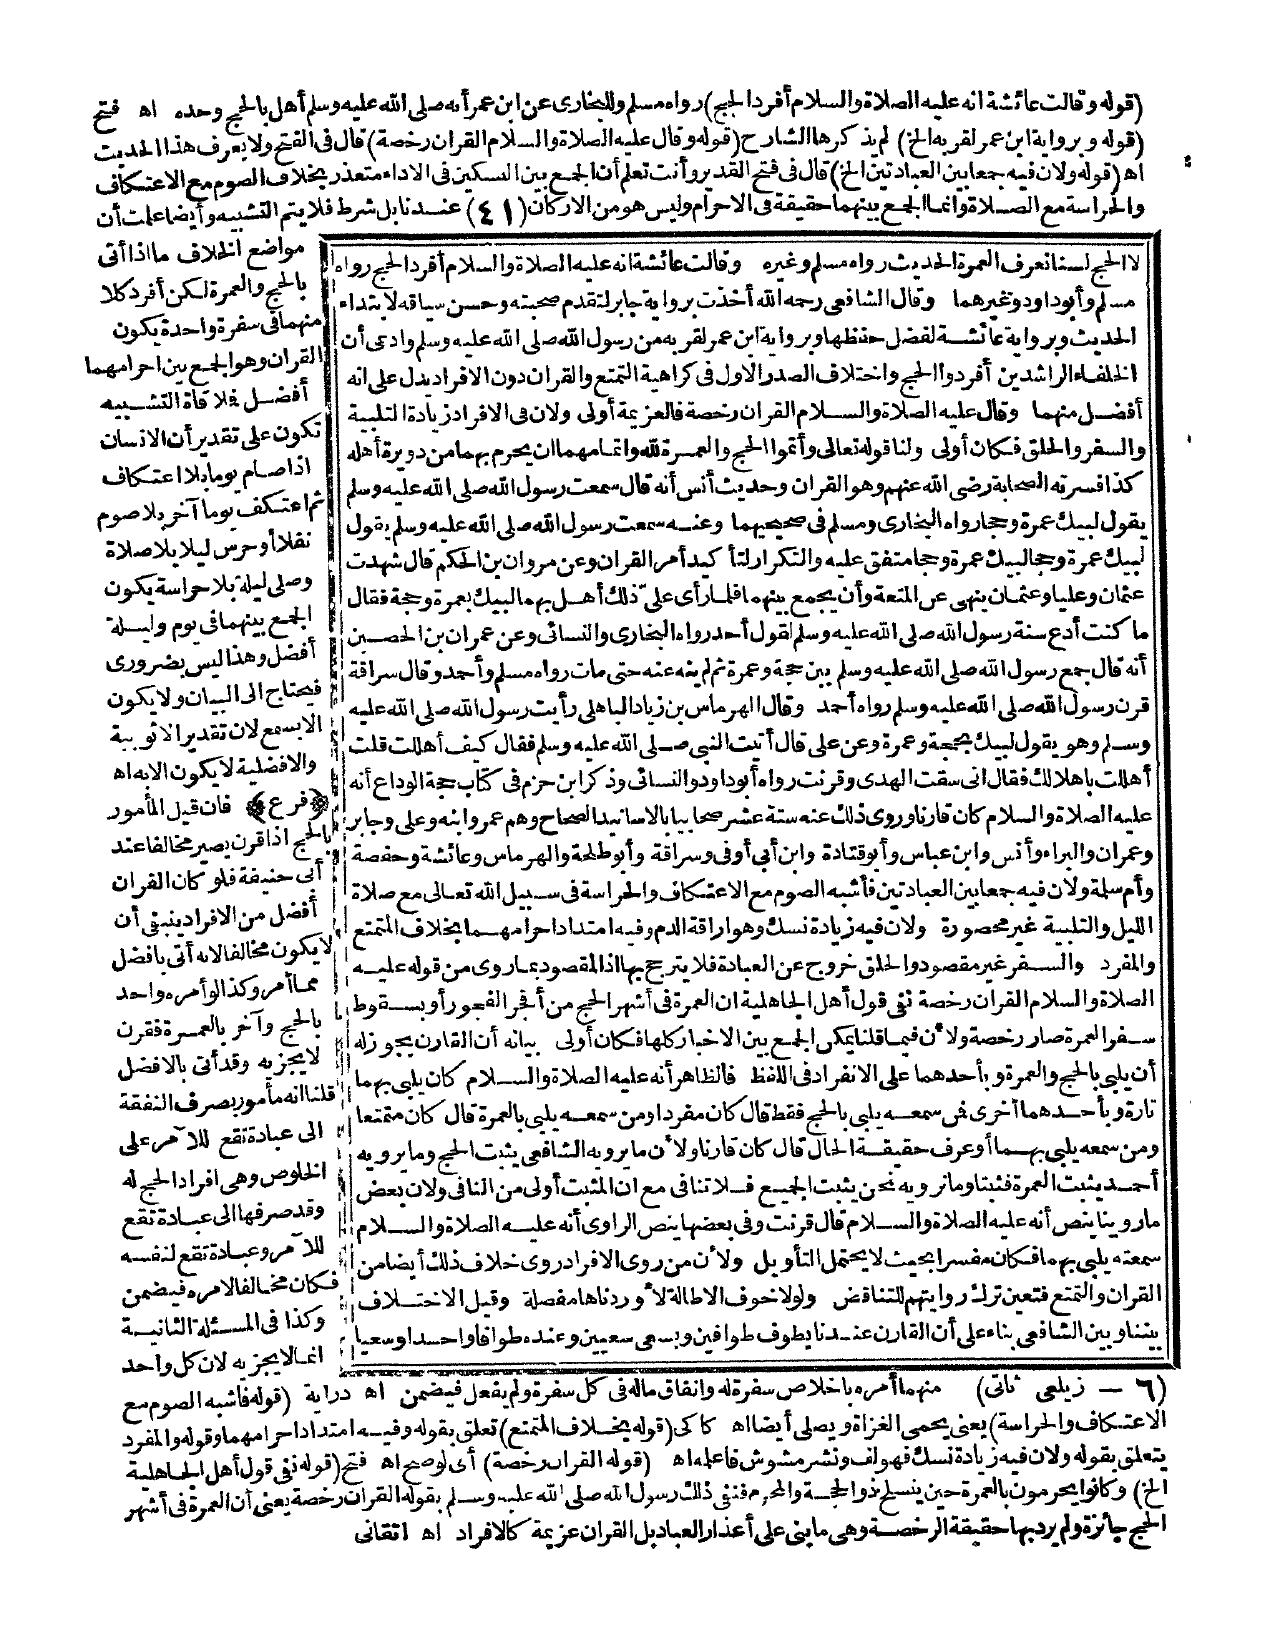 (قوله وقالت عائشة انه عليه الصلاة والسلام أفرد الحج) رواه مسلم وللبخارى عن ابن عمر أنه صلى الله عليه وسلم أهل بالحج وحده اه فتح
(قوله وبرواية ابن عمر لقربه الخ) لم يذكرها الشارح (قوله وقال عليه الصلاة والسلام القران رخصة) قال فى الفتح ولا يعرف هذا الحديث
اه (قوله ولان فيه جمعا بين العبادتين الخ) قال فى فتح القدير وأنت تعلم أن الجمع بين النسكين فى الاداء متعذر بخلاف الصوم مع الاعتكاف
والحراسة مع الصلاة وانما الجمع بينهما حقيقة فى الاحرام وليس هو من الاركان (٤١) عندنا بل شرط فلا يتم التشبيه وأيضا علمت أن
لا الحج لسنا نعرف العمرة الحديث رواه مسلم وغيره وقالت عائشة انه عليه الصلاة والسلام أفرد الحج رواه
مسلم وأبو داود وغيرهما وقال الشافعى رحمه الله أخذت برواية جابر لتقدم صحبته وحسن سياقه لابتداء
الحديث وبرواية عائشة لفضل حفظها وبرواية ابن عمر لقربه من رسول الله صلى الله عليه وسلم وادعى أن
الخلفاء الراشدين أفردوا الحج واختلاف الصدر الاول فى كراهية التمتع والقران دون الافراد يدل على انه
أفضل منهما وقال عليه الصلاة والسلام القران رخصة فالعزيمة أولى ولان فى الافراد زيادة التلبية
والسفر والحلق فكان أولى ولنا قوله تعالى وأتموا الحج والعمرة لله واتمامهما ان يحرم بهما من دويرة أهله
كذا فسرته الصحابة رضى الله عنهم وهو القران وحديث أنس أنه قال سمعت رسول الله صلى الله عليه وسلم
يقول لبيك عمرة وحجا رواه البخارى ومسلم فى صحيحيهما وعنه سمعت رسول الله صلى الله عليه وسلم يقول
لبيك عمرة وحجا لبيك عمرة وحجا متفق عليه والتكرار لتأكيد أمر القران وعن مروان بن الحكم قال شهدت
عثمان وعليا وعثمان ينهى عن المتعة وأن يجمع بينهما فلما رأى على ذلك أهل بهما لبيك بعمرة وحجة فقال
ما كنت أدع سنة رسول الله صلى الله عليه وسلم لقول أحد رواه البخارى والنسائى وعن عمران بن الحصين
أنه قال جمع رسول الله صلى الله عليه وسلم بين حجة وعمرة ثم لم ينه عنه حتى مات رواه مسلم وأحمد وقال سراقة
قرن رسول الله صلى الله عليه وسلم رواه أحمد وقال الهرماس بن زياد الباهلى رأيت رسول الله صلى الله عليه
وسلم وهو يقول لبيك بحجة وعمرة وعن على قال أتيت النبى صلى الله عليه وسلم فقال كيف أهللت قلت
أهللت باهلالك فقال انى سقت الهدى وقرنت رواه أبو داود والنسائى وذكر ابن حزم فى كتاب حجة الوداع أنه
عليه الصلاة والسلام كان قارنا وروى ذلك عنه ستة عشر صحابيا بالاسانيد الصحاح وهم عمر وابنه وعلى وجابر
وعمران والبراء وأنس وابن عباس وأبو قتادة وابن أبى أوفى وسراقة وأبو طلحة والهرماس وعائشة وحفصة
وأم سلمة ولان فيه جمعا بين العبادتين فأشبه الصوم مع الاعتكاف والحراسة فى سبيل الله تعالى مع صلاة
الليل والتلبية غير محصورة ولان فيه زيادة نسك وهو اراقة الدم وفيه امتداد احرامهما بخلاف المتمتع
والمفرد والسفر غير مقصود والحلق خروج عن العبادة فلا يترجح بها اذ المقصود بما روى من قوله عليه
الصلاة والسلام القران رخصة نفى قول أهل الجاهلية ان العمرة فى أشهر الحج من أفجر الفجور أو بسقوط
سفر العمرة صار رخصة ولأن فيما قلنا يمكن الجمع بين الاخبار كلها فكان أولى بيانه أن القارن يجوز له
أن يلبى بالحج والعمرة وبأحدهما على الانفراد فى اللفظ فالظاهر أنه عليه الصلاة والسلام كان يلبى بهما
تارة وبأحدهما أخرى فمن سمعه يلبى بالحج فقط قال كان مفردا ومن سمعه يلبى بالعمرة قال كان متمتعا
ومن سمعه يلبى بهما أو عرف حقيقة الحال قال كان قارنا ولأن ما يرويه الشافعى يثبت الحج وما يرويه
أحمد يثبت العمرة فثبتا وما نرويه نحن يثبت الجميع فلا تنافى مع ان المثبت أولى من النافى ولان بعض
ما روينا ينص أنه عليه الصلاة والسلام قال قرنت وفى بعضها ينص الراوى أنه عليه الصلاة والسلام
سمعته يلبى بهما فكان مفسرا بحيث لا يحتمل التأويل ولأن من روى الافراد روى خلاف ذلك أيضا من
القران والتمتع فتعين ترك روايتهم للتناقض ولولا خوف الاطالة لأوردناها مفصلة وقيل الاختلاف
بيننا وبين الشافعى بناء على أن القارن عندنا يطوف طوافين ويسعى سعيين وعنده طوافا واحدا وسعيا
مواضع الخلاف ما اذا أتى
بالحج والعمرة لكن أفرد كلا
منهما فى سفرة واحدة يكون
القران وهو الجمع بين احرامهما
أفضل فلا قاة التشبيه
تكون على تقدير أن الانسان
اذا صام يوما بلا اعتكاف
ثم اعتكف يوما آخر بلا صوم
نفلا أو حرس ليلا بلا صلاة
وصلى ليلة بلا حراسة يكون
الجمع بينهما فى يوم وليلة
أفضل وهذا ليس بضرورى
فيحتاج الى البيان ولا يكون
الا بسمع لان تقدير الاثوبية
والافضلية لا يكون الا به اه
﴿فرع﴾ فان قيل المأمور
بالحج اذا قرن يصير مخالفا عند
أبى حنيفة فلو كان القران
أفضل من الافراد ينبغى أن
لا يكون مخالفا لانه أتى بافضل
مما أمر وكذا لو أمره واحد
بالحج وآخر بالعمرة فقرن
لا يجزيه وقد أتى بالافضل
قلنا انه مأمور بصرف النفقة
الى عبادة تقع للآمر على
الخلوص وهى افراد الحج له
وقد صرفها الى عبادة تقع
للآمر وعبادة تقع لنفسه
فكان مخالفا لامره فيضمن
وكذا فى المسئلة الثانية
انما لا يجزيه لان كل واحد
(٦ - زيلعى ثانى) منهما أمره باخلاص سفرة له وانفاق ماله فى كل سفرة ولم يفعل فيضمن اه دراية (قوله فاشبه الصوم مع
الاعتكاف والحراسة) يعنى يحمى الغزاة ويصلى أيضا اه كاكى (قوله بخلاف المتمتع) تعلق بقوله وفيه امتداد احرامهما وقوله والمفرد
يتعلق بقوله ولان فيه زيادة نسك فهو لف ونشر مشوش فاعله اه (قوله القران رخصة) أى لو صح اه فتح (قوله نفى قول أهل الجاهلية
الخ) وكانوا يحرمون بالعمرة حين ينسلخ ذو الحجة والمحرم فنفى ذلك رسول الله صلى الله عليه وسلم بقوله القران رخصة يعنى أن العمرة فى أشهر
الحج جائزة ولم يرد بها حقيقة الرخصة وهى ما بنى على أعذار العباد بل القران عزيمة كالافراد اه اتقانى